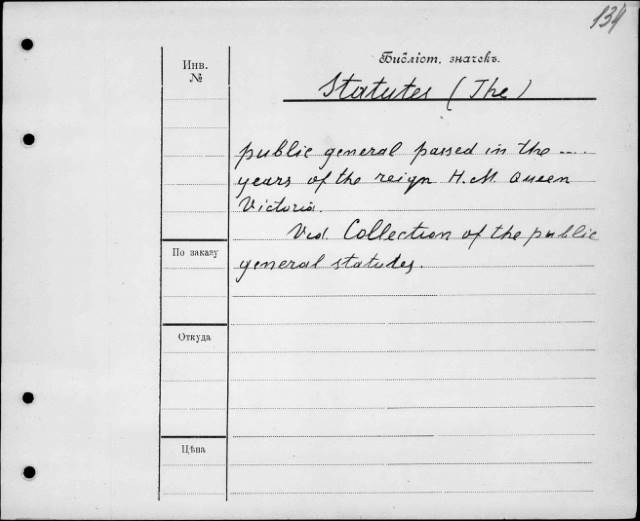 134
Библіот. значекъ.
Инв.
№
Statutes (The)
public general passed in the ....
years of the reign H.M. Queen
Victoria.
Vid. Collection of the public
По заказу
general statutes.
Откуда
Цѣна